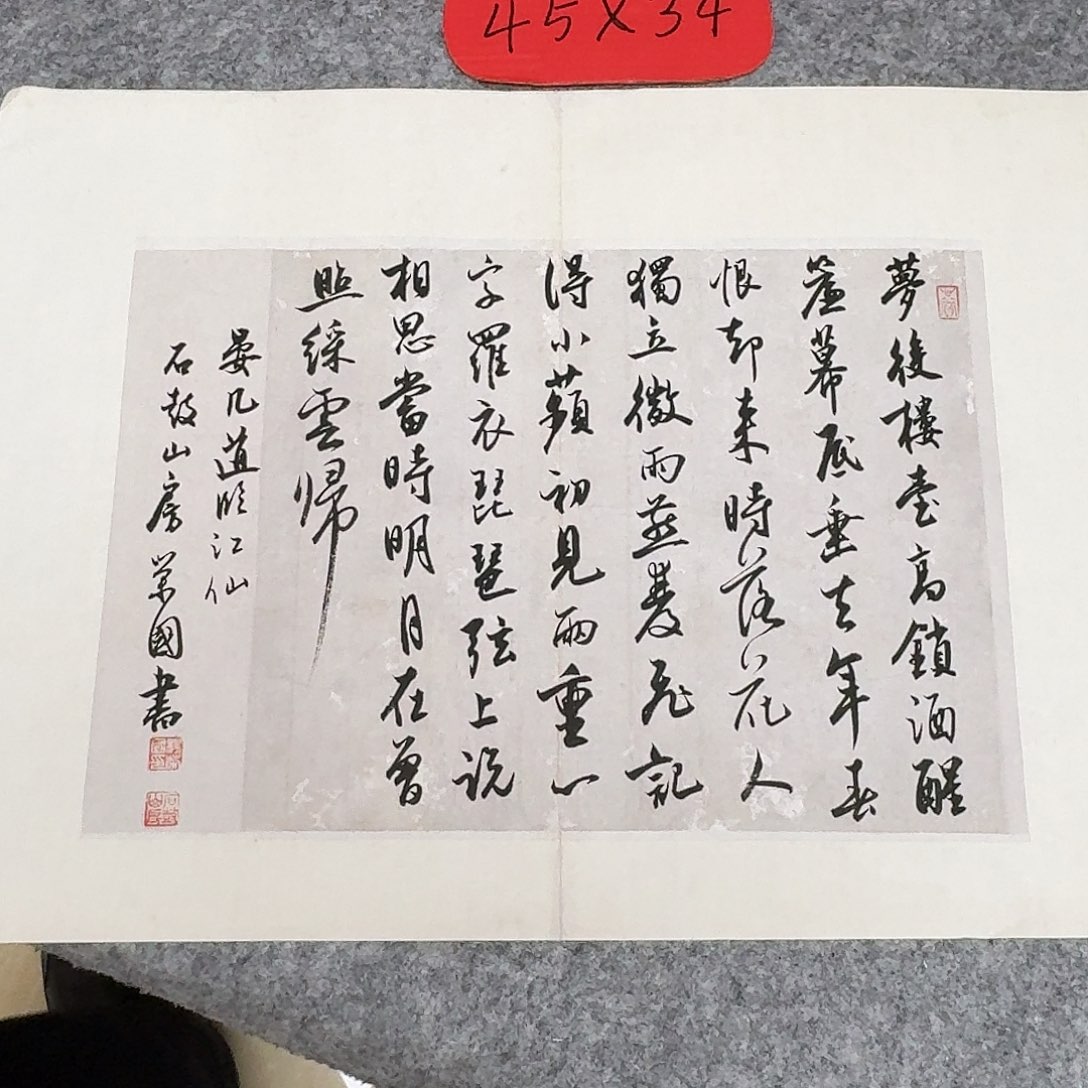 45×34
夢後樓臺高鎖酒醒
簾幕底垂去年春
恨却来時落花人
獨立微雨燕雙飛記
得小蘋初見兩重心
字羅衣琵琶弦上说
相思當時明月在曾
照綵雲帰
晏几道临江仙
石鼓山房荣國書